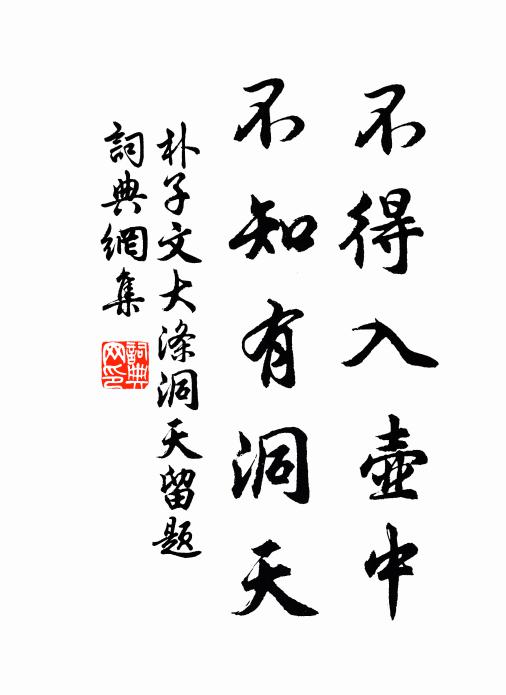 不得入壺中
不知有洞天
朴子文大涤洞天留题
詞典網集
詞典網印